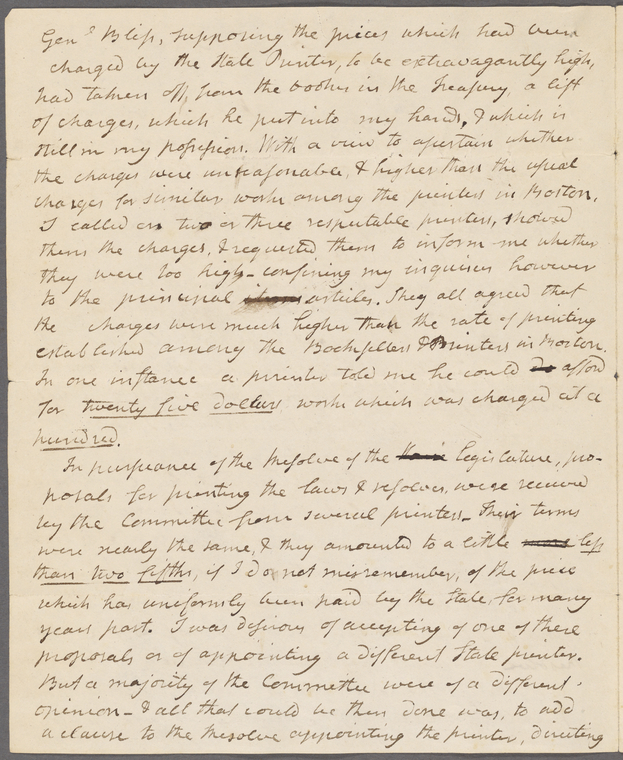 Genl Bliss, supposing the prices which had been
charged by the State Printer, to be extravagantly high,
had taken off, from the books in the Treasury, a list
of charges, which he put into my hands, & which is
still in my possession. With a view to ascertain whether
the charges were unreasonable, & higher than the usual
charges for similar work among the printers in Boston,
I called on two or three respectable printers, showed
them the charges, & requested them to inform me whether
they were too high – confining my inquiries however
to the principal items articles. They all agreed that
the charges were much higher than the rate of printing
established among the Booksellers & Printers in Boston.
In one instance a printer told me he could do afford
for twenty five dollars work which was charged at a
hundred.
In pursuance of the Resolve of the legislature, pro-
posals for printing the laws & resolves, were received
by the Committee from several printers – Their terms
were nearly the same, & they amounted to a little more less
than two fifths, if I do not misremember, of the price
which has uniformly been paid by the State, for many
years past. I was desirous of accepting of one of these
proposals or of appointing a different State printer.
But a majority of the Committee were of a different
opinion – & all that could be then done was, to add
a clause to the Resolve appointing the printer, directing